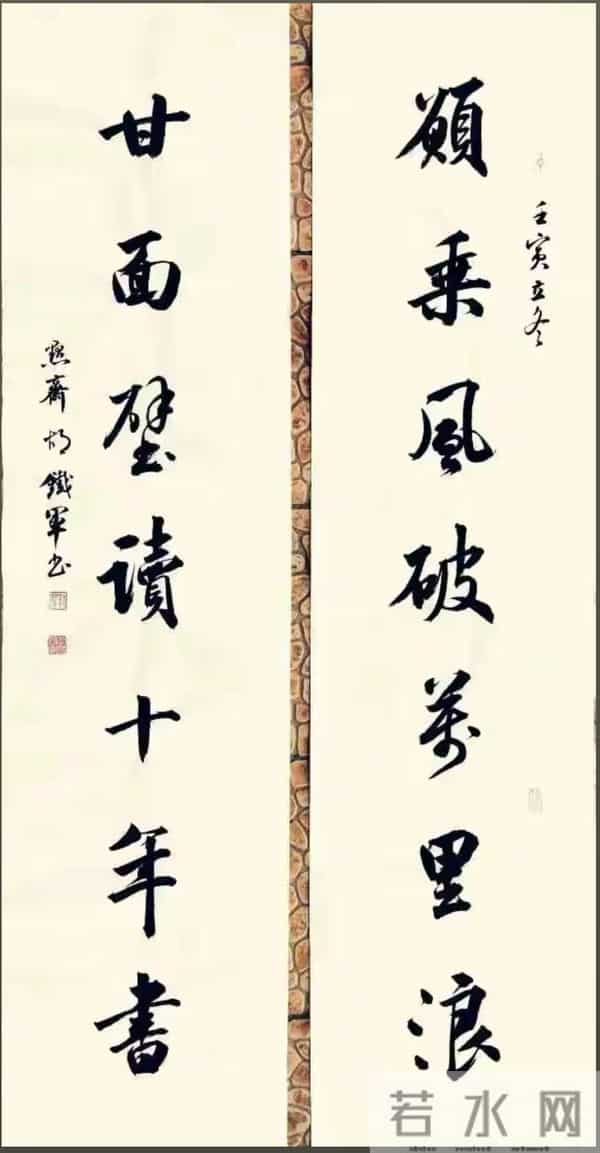 願乘風破萬里浪
壬寅立冬
甘面壁讀十年書
齋胡鐵軍书
若水网